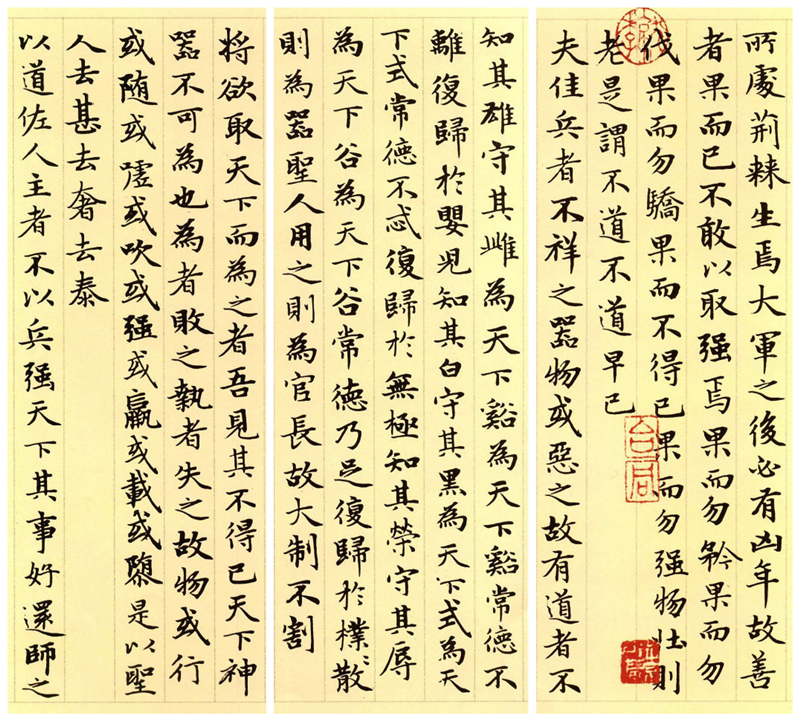 所處荆棘生焉大軍之後必有凶年故善
者果而已不敢以取强焉果而勿矜果而勿
伐果而勿驕果而不得已果而勿强物壮則
老是謂不道不道早已
夫佳兵者不祥之器物或惡之故有道者不
知其雄守其雌為天下谿為天下谿常德不
離復歸於嬰児知其白守其黑為天下式為天
下式常德不忒復歸於無極知其榮守其辱
為天下谷為天下谷常德乃足復歸於樸〻散
則為器聖人用之則為官長故大制不割
将欲取天下而為之者吾見其不得已天下神
器不可為也為者敗之執者失之故物或行
或随或嘘或吹或强或羸或載或隳是以聖
人去甚去奢去泰
以道佐人主者不以兵强天下其事好還師之